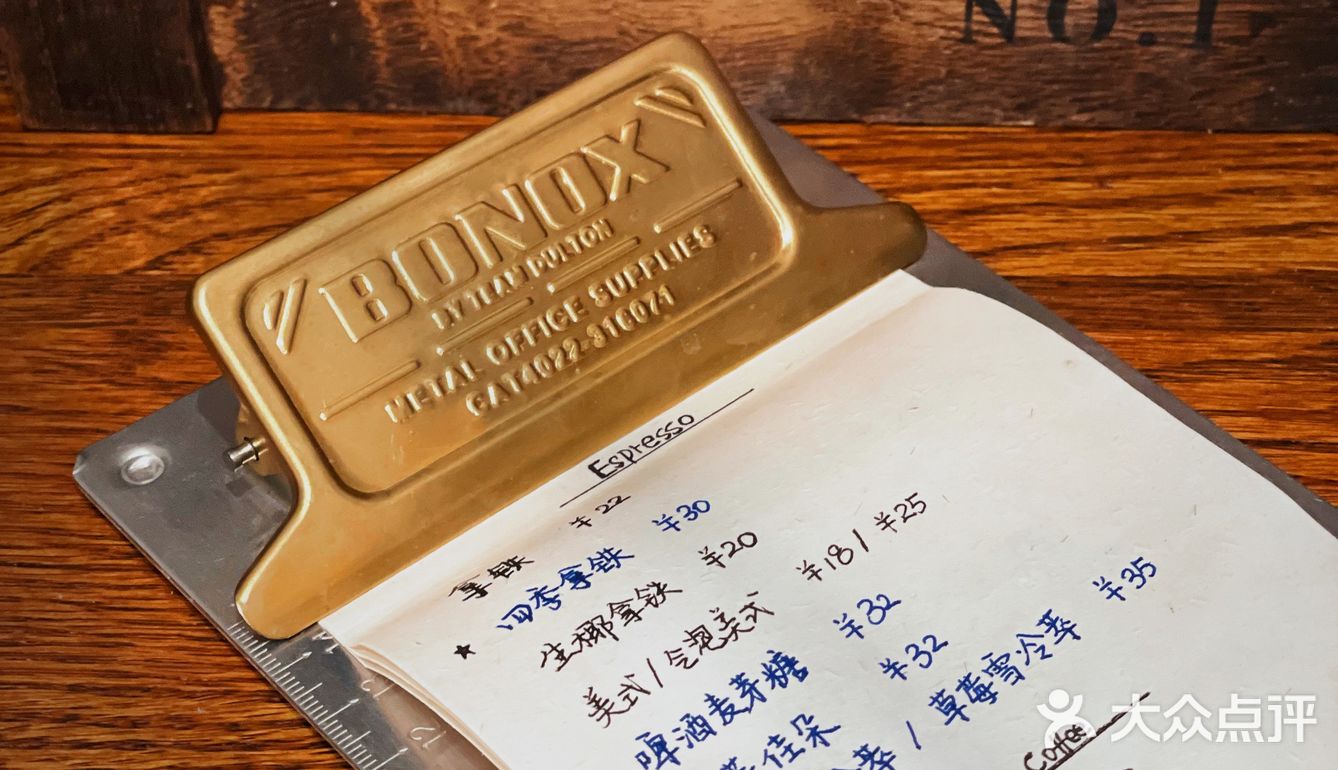 NO.1
BONOX
BY TEAM DULTON
METAL OFFICE SUPPLIES
CAT4022-316071
Espresso
拿铁 ¥22
★ 四季拿铁 ¥30
生椰拿铁 ¥20
美式/冷泡美式 ¥18/¥25
啤酒麦芽糖 ¥32
佳朵 ¥32
萃/草莓雪冷萃 ¥35
Coffee
大众点评